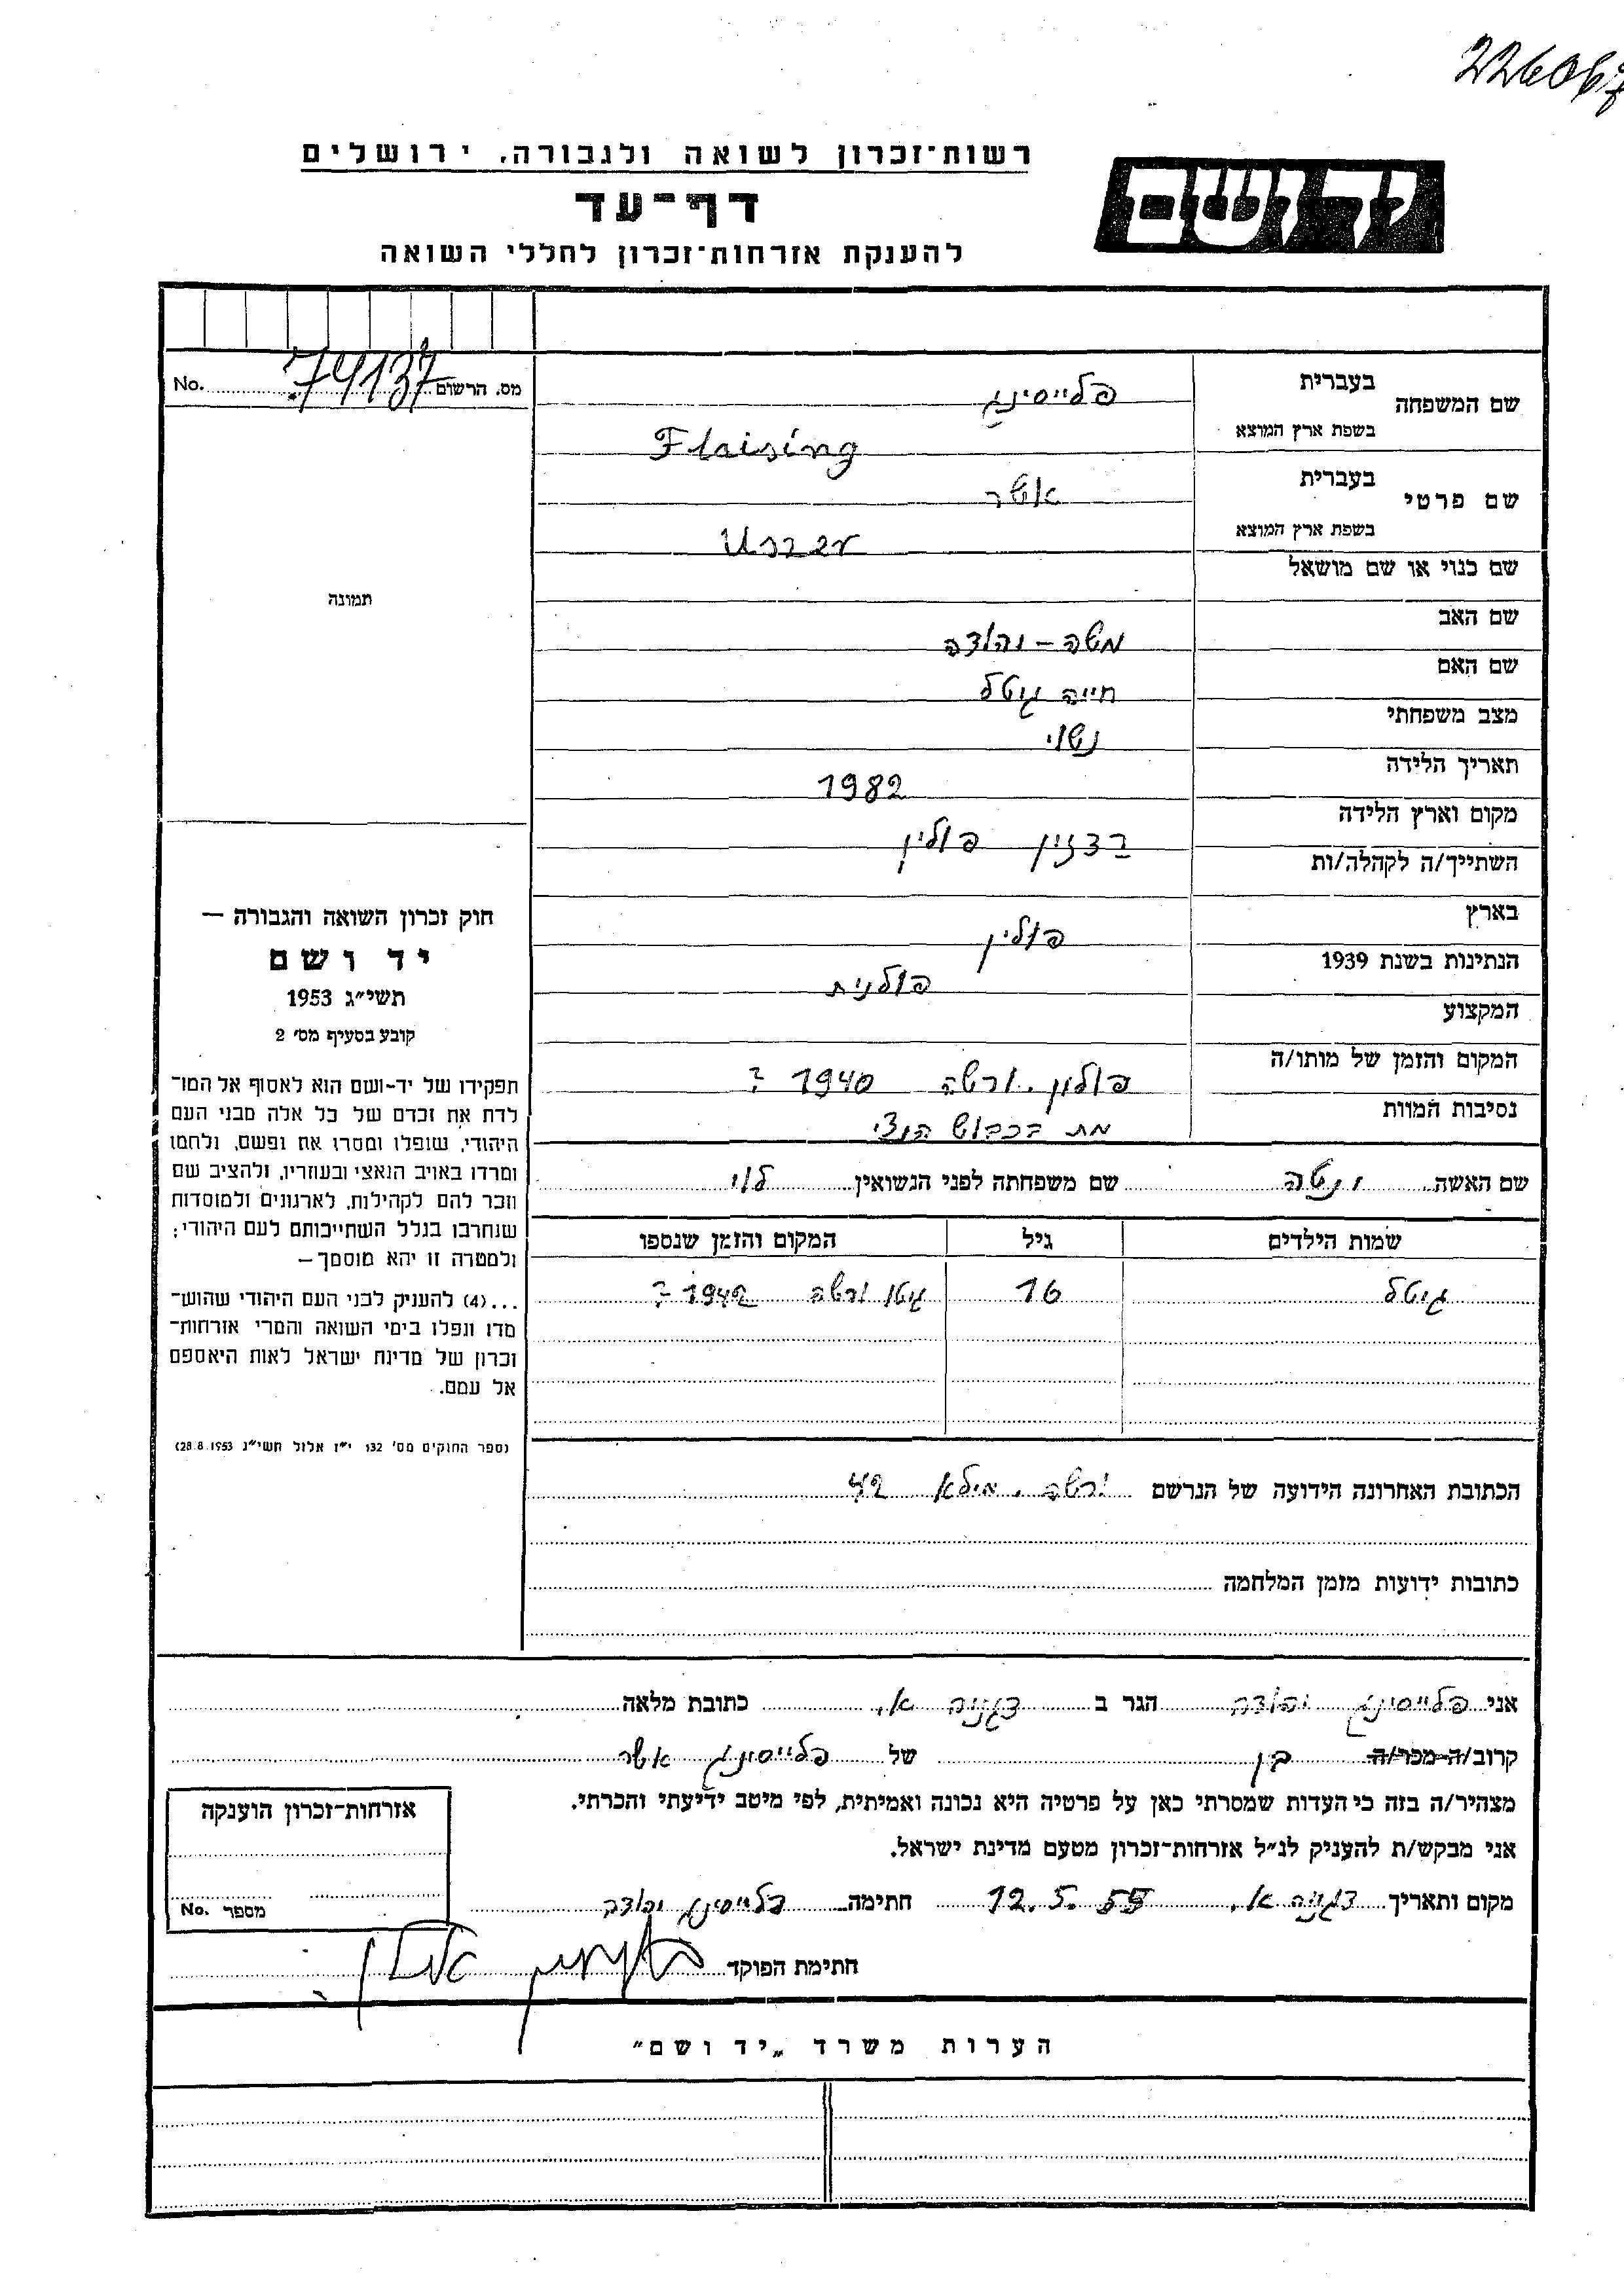 226067
רשות־זכרון לשואה ולגבורה, ירושלים
יד ושם
דף־עד
להענקת אזרחות־זכרון לחללי השואה
מס. הרשום 74137 No.
שם המשפחה בעברית פלייסינג
בשפת ארץ המוצא Flaising
שם פרטי בעברית אשר
בשפת ארץ המוצא Uszer
שם כנוי או שם מושאל
שם האב משה - יהודה
שם האם חייה גיטל
מצב משפחתי נשוי
תאריך הלידה 1982
מקום וארץ הלידה ברזין פולין
השתייך/ה לקהלה/ות
בארץ פולין
הנתינות בשנת 1939 פולנית
המקצוע
המקום והזמן של מותו/ה פולין. ורשה 1940 ?
נסיבות המוות מת בכבוש הנצי
תמונה
חוק זכרון השואה והגבורה —
יד ושם
תשי״ג 1953
קובע בסעיף מס׳ 2
תפקידו של יד-ושם הוא לאסוף אל המו־
לדת את זכרם של כל אלה מבני העם
היהודי, שנפלו ומסרו את נפשם, נלחמו
ומרדו באויב הנאצי ובעוזריו, ולהציב שם
וזכר להם לקהילות, לארגונים ולמוסדות
שנחרבו בגלל השתייכותם לעם היהודי;
ולמטרה זו יהא מוסמך —
...(4) להעניק לבני העם היהודי שהוש־
מדו ונפלו בימי השואה והמרי אזרחות־
זכרון של מדינת ישראל לאות היאספם
אל עמם.
(ספר החוקים מס׳ 132 י״ז אלול תשי״ג 28.8.1953)
שם האשה שם משפחתה לפני הנשואין לוי
שמות הילדים גיל המקום והזמן שנספו
גיטל 16 גיטו ורשה 1942 ?
הכתובת האחרונה הידועה של הנרשם ורשה. מילא 42
כתובות ידועות מזמן המלחמה
אני פלייסינג יהודה הגר ב דגניה א. כתובת מלאה
קרוב/ה מכר/ה בן של פלייסינג אשר
מצהיר/ה בזה כי העדות שמסרתי כאן על פרטיה היא נכונה ואמיתית, לפי מיטב ידיעתי והכרתי.
אני מבקש/ת להעניק לנ״ל אזרחות־זכרון מטעם מדינת ישראל.
מקום ותאריך דגניה א. 12.5.55 חתימה פלייסינג יהודה
אזרחות־זכרון הוענקה
מספר No.
חתימת הפוקד
הערות משרד „יד ושם״